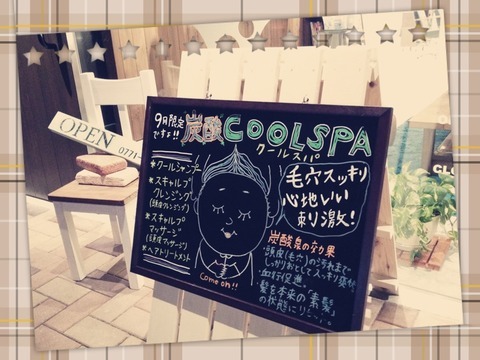 OPEN
0771-
9月限定
ですよ!!
炭酸
COOLSPA
クールスパ
*クールシャンプー
*スキャルプ
クレンジング
(頭皮クレンジング)
*スキャルプ
マッサージ
(頭皮マッサージ)
*ヘアトリートメント
毛穴スッキリ
心地いい
刺激!
炭酸泉の効果
・頭皮(毛穴)の汚れまで
しっかりおとしてスッキリ爽快
・血行促進
・髪を本来の「素髪」
の状態に
Come on!!